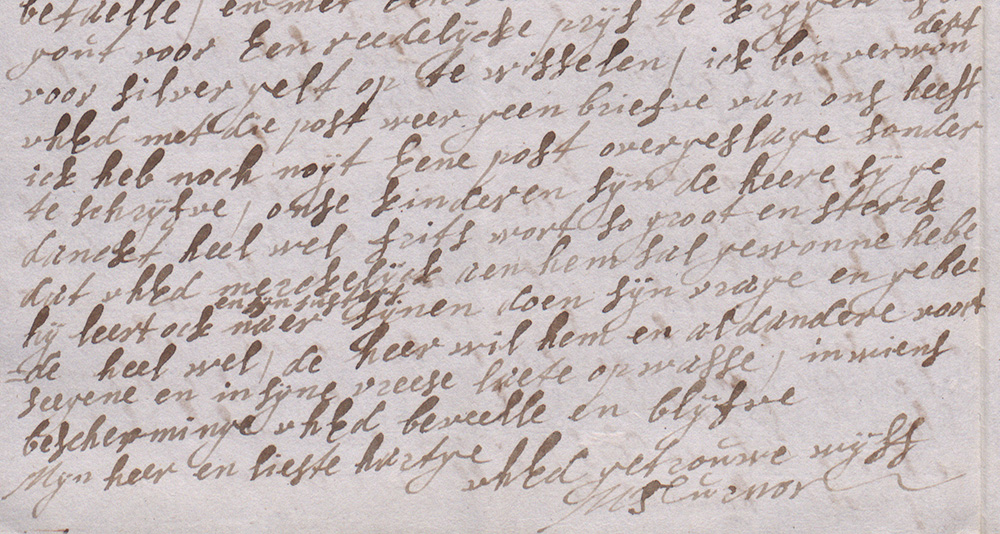 betaelle / en met
gout voor Een reedelijcke prijs te krijgen
voor silver gelt op te wisselen / ick ben verwon
dert
vhEd met die post weer geen briefve van ons heeft
ick heb noch noyt Eene post overgeslage sonder
te schrijfve / onse kinderen sijn de heere sij ge
danckt heel wel frits wort so groot en sterck
dat vhEd merckelijck aen hem sal gewonne hebe
en sijn susters
hij leert ock naer sijnen doen sijn vrage en gebee
=de heel wel / de heer wil hem en al dandere voort
seegene en in sijne vreese laete opwasse / in wiens
bescherminge vhEd beveelle en blijfve
Mijn heer en lieste hartje
vhEd getrouwe wijff